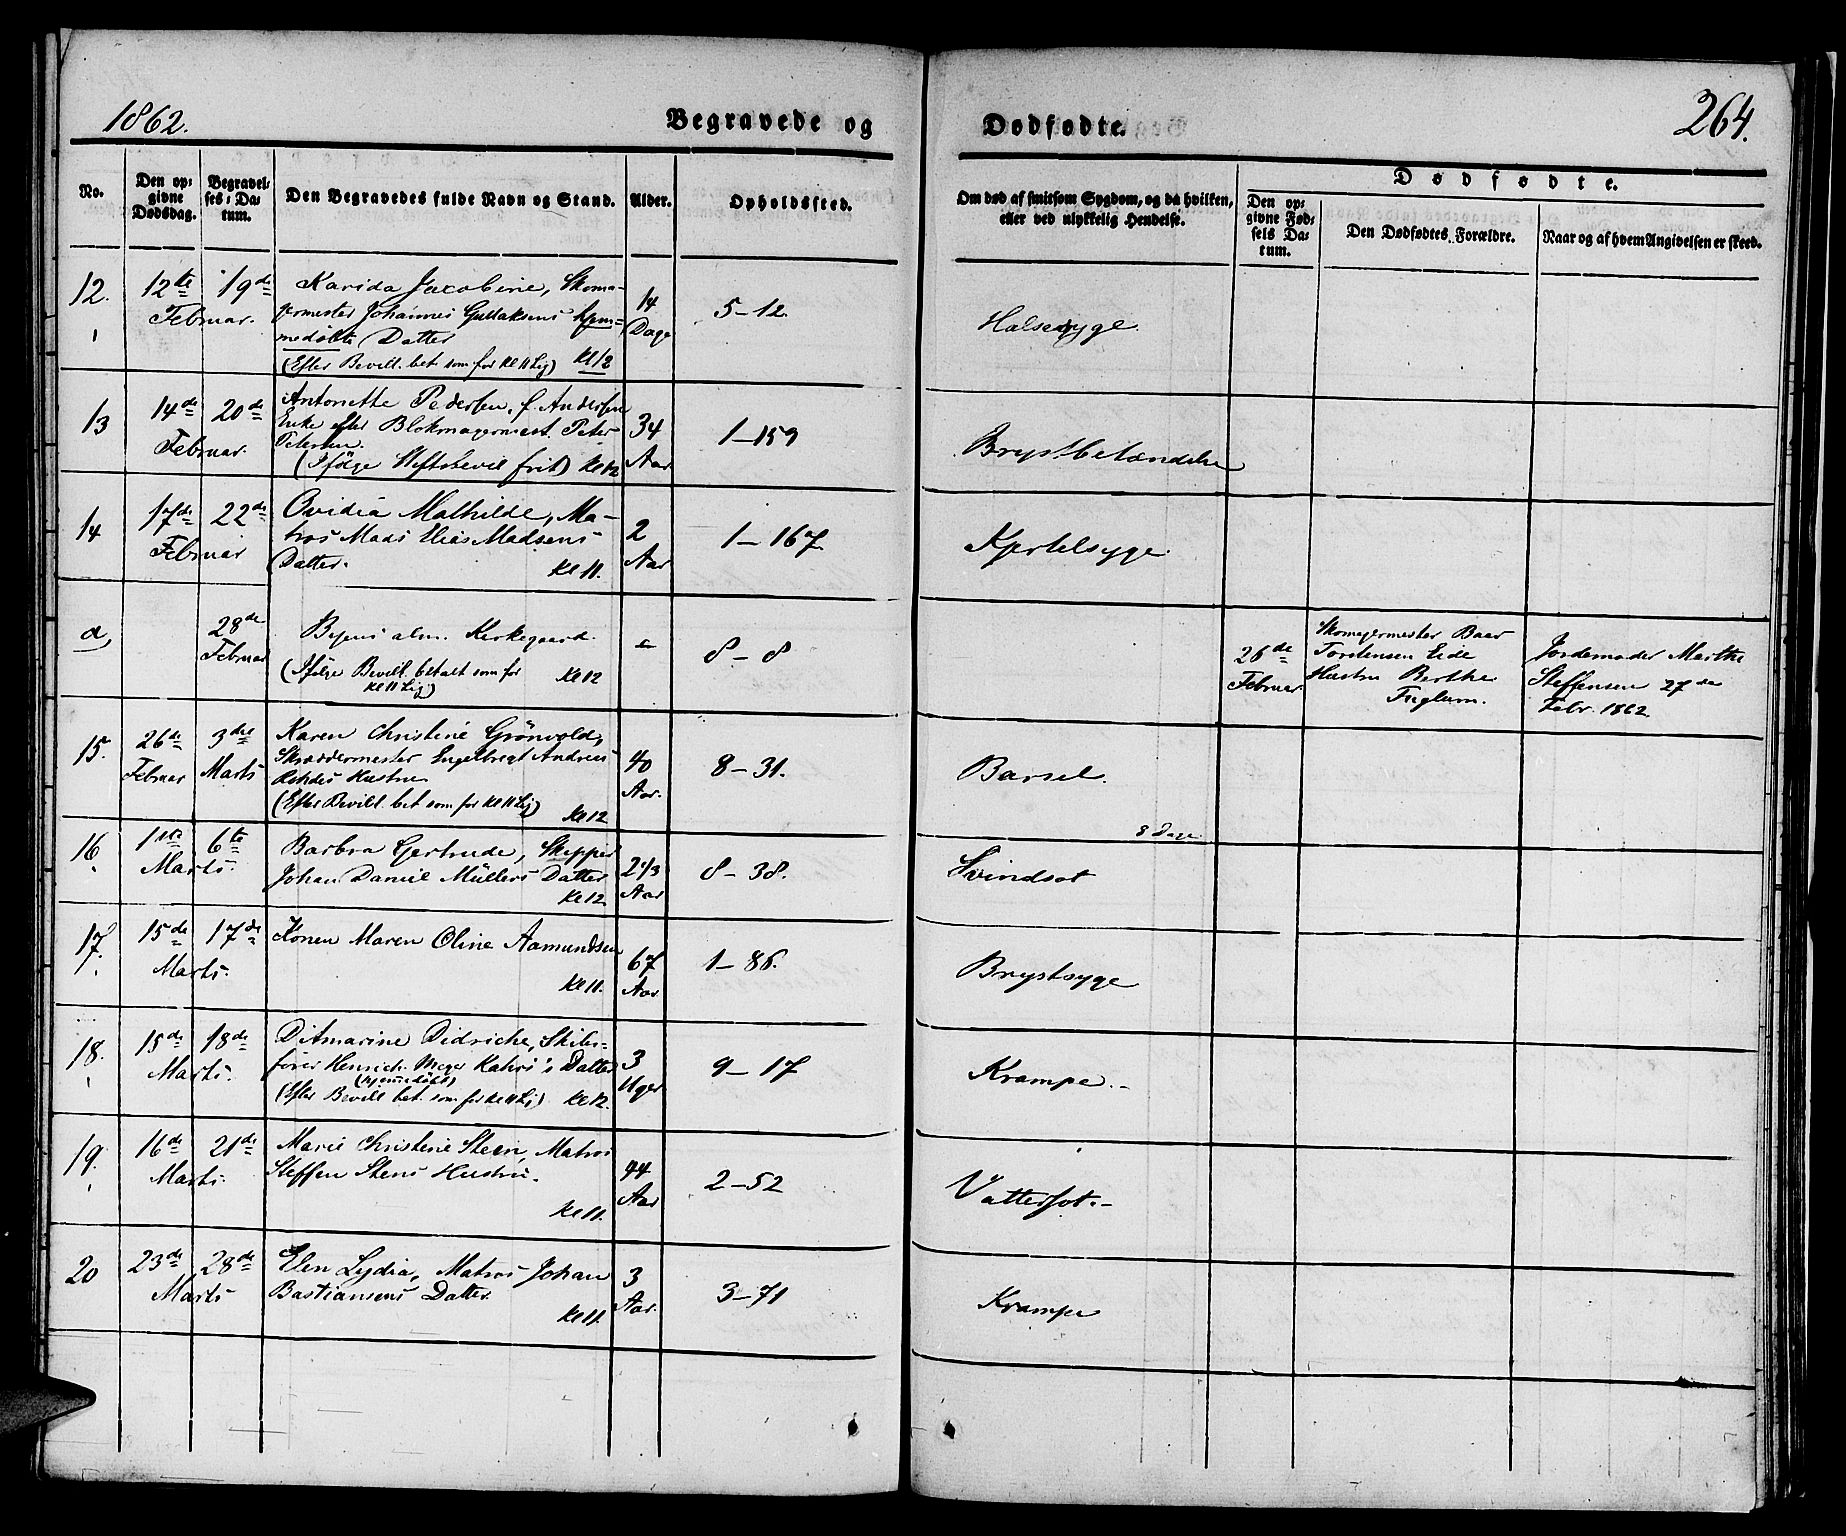 1862.
Begravede og Dødfødte.
264.
No.
Den opgivne Dødsdag.
Begravelses-Datum.
Den Begravedes fulde Navn og Stand.
Alder.
Opholdssted.
Om død af smitsom Sygdom, og da hvilken, eller ved ulykkelig Hendelse.
Dødfødte.
Den opgivne Fødsels Datum.
Den Dødfødtes Forældre.
Naar og af hvem Angivelsen er skeed.
12. 12te 19de Februar.
Karida Jacobine, Skoma-
germester Johannes Gullaksens hjem-
medøbte Datter
(Efter Bevill. bet. som for Kl 11 Lig) Kl 12
14 Dage
5-12.
Halsesyge.
13 14de 20de Februar.
Antonette Pedersen, f. Andersen
Enke efter Blokmagermest. Peter
Petersen.
(Ifølge Stiftsbevil frit) Kl 12
34 Aar
1-159
Brystbetændelse
14 17de 22de Februar
Ovidia Mathilde, Ma-
tros Mads Elias Madsens
Datter. Kl 11.
2 Aar
1-167.
Kjertelsyge.
a, 28de Februar
Byens alm. Kirkegaard.
(Ifølge Bevill. betalt som for Kl 12
Kl 11 Lig)
8-8
26de Februar
Skomagermester Baar
Torstensen Eide
Hustru Berthe
Jordemoder Marthe
Steffensen 27de
Febr. 1862.
15. 26de Februar 3die Marts
Karen Christine Grönvold,
Skræddermester Engelbregt Andreas
Hustru
(Efter Bevill. bet som for Kl 11 Lig)
Kl 12
40 Aar.
8-31.
Barsel.
8 Dage
16. 1ste 6te Marts.
Barbra Gertrude, Skipper
Johan Daniel Müllers Datter
Kl 12
2 1/3 Aar
8-38.
Svindsot
17. 15de 17de Marts.
Konen Maren Oline Aamundsen
Kl 11.
67 Aar
1-86.
Brystsyge
18. 15de 18de Marts.
Ditmarine Didriche, Skibs-
fører Henrich Meyer Kahrs's Datter
(hjemmedøbt)
(Efter Bevill bet. som for Kl 11 Lig) Kl 12.
3 Uger
9-17
Krampe.-
19. 16de 21de Marts.
Marie Christine Steen, Matros
Steffen Stens Hustru.
Kl 11.
44 Aar
2-52
Vattersot.-
20 23de 28de Marts
Elen Lydia, Matros Johan
Bastiansens Datter.
Kl 11.
3 Aar.
3-71
Krampe